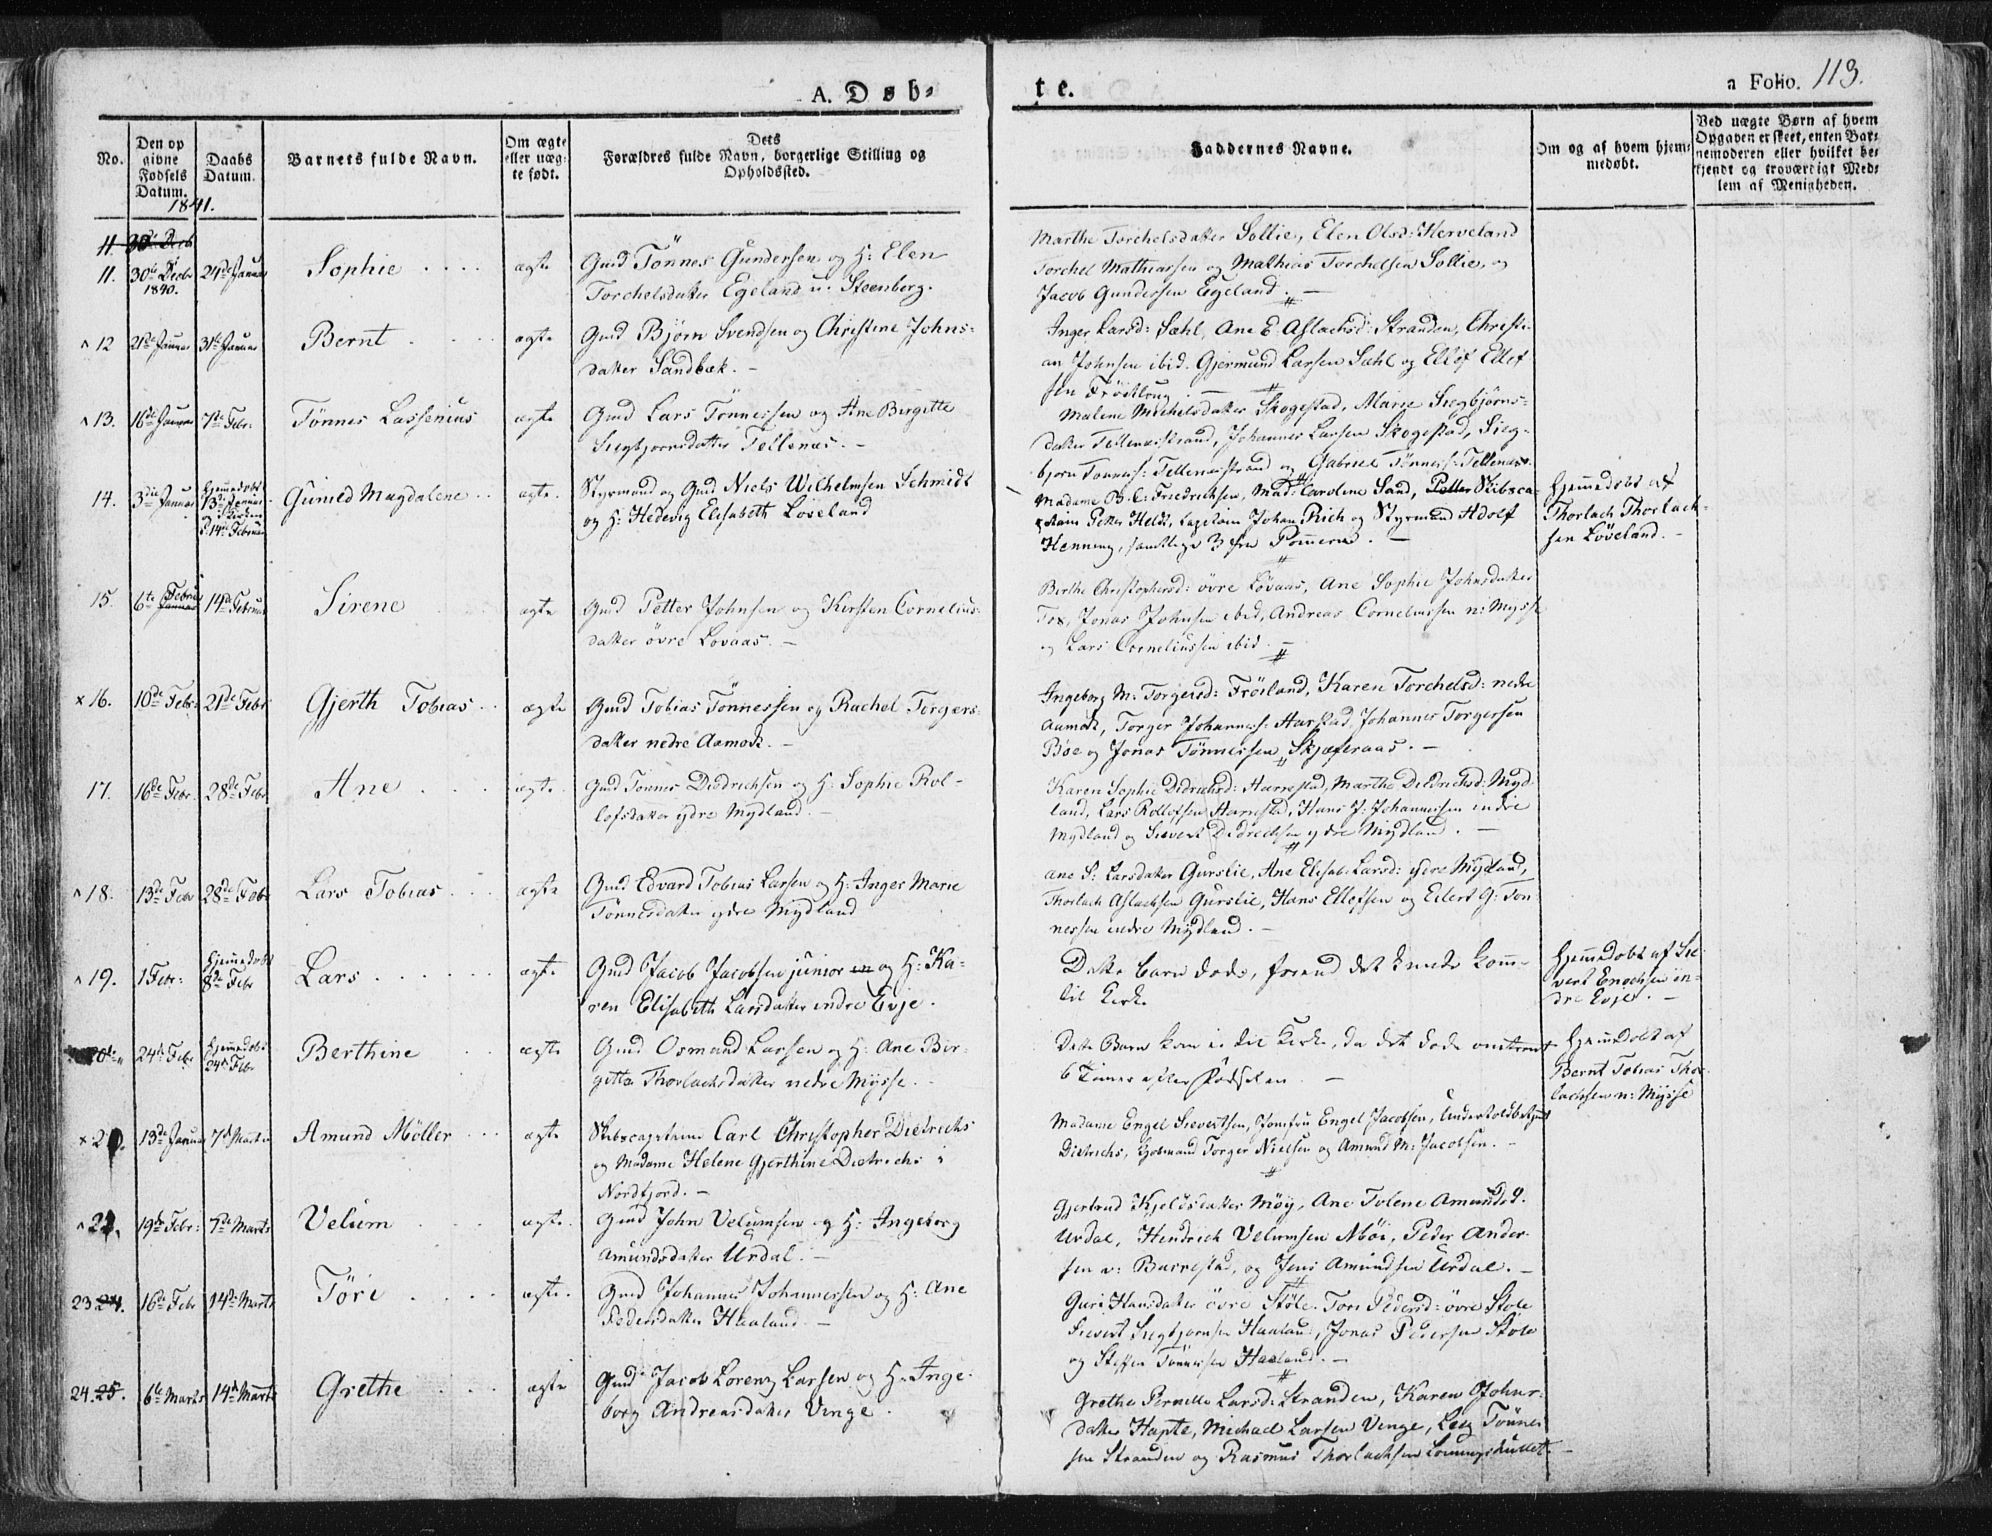 A. Døb-
te.
a Folio. 113.
No.
Den op
givne
Fødsels
Datum.
1841.
Daabs
Datum.
Barnets fulde Navn.
Om ægte
eller uæg-
te født.
Dets
Forældres fulde Navn, borgerlige Stilling og
Opholdssted.
Faddernes Navne.
Om og af hvem hjem-
medøbt.
Ved uægte Børn af hvem
Opgaven er skeet, enten Bar-
nemoderen eller hvilket be-
kjendt og troværdigt Med-
lem af Menigheden.
11. 30de Decb
11. 30te Decbr 1840. 24de Januar Sophie ægte
Gmd Tönnes Gundersen og H: Elen
Torchelsdatter Egeland u: Steenberg.
Marthe Torchelsdatter Sollie, Elen Olsd: Herveland
Torchel Mathiassen og Mathias Torchelsen Sollie, og
Jacob Gundersen Egeland. —
12 21de Januar 31te Januar Bernt ægte
Gmd Bjørn Svendsen og Christine Johns-
datter Sandbæk. —
Inger Larsd: Sæhl, Ane E. Aslachsd: Stranden, Christi-
an Johnsen ibid. Gjermund Larsen Sæhl og Ellef Ellef
sen Fröitlrug. —
13. 16de Januar 7de Febr: Tønnes Lassenius ægte
Gmd Lars Tonnessen og Ane Birgitte
Siegbjornsdatter Tellenæs. —
Malene Michelsdatter Skogestad, Marie Siegbjörns-
datter Tellenæsstrand, Johannes Larsen Skogestad, Sieg-
bjorn Tonness: Tellenæsstrand og Gabriel Tønness: Tellenæs.
14. 3die Januar Hjemmedøbt 13de Januar i Kirken d. 14de Februar Gunild Magdalene ægte.
Styrmand og Gmd Niels Wilhelmsen Schmidt
og H: Hedevig Elisabeth Løseland
Madame B. C: Friedrichsen, Mad: Carolene Sand, Petter Skibsca-
ptain Petter Heldt, Capitain Johan Rich og Styrmand Adolf
Henning, samtlige 3 fra Pommern. —
Hjemmedøbt af
Thorlach Thorlach-
sen Løveland. —
15. 6te Februar Januar 14de Februar Sirene ægte
Gmd Petter Johnsen og Kirsten Cornelius-
datter øvre Lovaas. —
Birthe Christophersd: övre Løvaas, Ane Sophie Johnsdatter
Tox, Jonas Johnsen ibid, Andreas Corneliussen n: Mysse
og Lars Corneliussen ibid. —
16. 10de Febr: 21de Febr Gjerth Tobias ægte
Gmd Tobias Tönnessen og Rachel Torgers-
datter nedre Aamodt. —
Ingeborg M: Torgersd: Fröiland, Karen Torchelsd: nedre
Aamodt, Torger Johanness: Aarstad, Johannes Torgersen
Böe og Jonas Tønnessen Skjæveraas. —
17. 16de Febr 28de Febr Ane ægte.
Gmd Tonnes Didrichsen og H: Sophie Rol-
lofsdatter ydre Mydland. —
Karen Sophie Didrichsd: Aarrestad, Marthe Didrichsd: Myd
land, Lars Rollofsen Aarrestad, Hans J: Johannessen indre
Mydland og Sievert Didrichsen ydre Mydland. —
18. 13de Febr 28de Febr Lars Tobias ægte
Gmd Edvard Tobias Larsen og H: Inger Marie
Tönnesdatter ydre Mydland
Ane S: Larsdatter Gurslie, Ane Elisab: Larsd: ydre Mydland,
Thorlach Aslachsen Gurslie, Hans Ellefsen og Eilert G: Ton
nessen indre Mydland. —
19. 1 Febr: Hjemmedøbt 8de Febr Lars ægte
Gmd Jacob Jacobsen junior og H: Ka-
ren Elisabeth Larsdatter indre Evje.
Dette Barn dode, forend det kunde komme
til Kirke
Hjemmedobt af Sie-
vert Enochsen in-
dre Evje. —
20de 24de Febr Hjemmedøbt 24de Febr Berthine ægte
Gmd Osmund Larsen og H: Ane Bir-
gitta Thorlachsdatter nedre Mysse. —
Dette Barn kom ei til Kirke, da det døde omtrent
6 Timer efter Fødselen. —
Hjemmedobt af
Bernt Tobias Thor-
lachsen n: Mysse
21. 13de Januar 7de Martz Amund Möller ægte
Skibscapitain Carl Christopher Dietrichs
og Madame Helene Gjerthine Dietrichs i
Nordfjord. —
Madame Engel Sievertsen, Jomfru Engel Jacobsen, Underholdsbetjent
Dietrichs, Kjøbmand Torger Nielsen og Amund M: Jacobsen. —
22. 19de Febr: 7de Marts Velum ægte.
Gmd John Velumsen og H: Ingeborg
Amundsdatter Urdal. —
Gjertrud Kjeldsdatter Möy, Ane Tolene Amundsd.
Urdal, Hendrich Velumsen Moi, Peder Ander-
sen n: Barrestad, og Jens Amundsen Urdal. —
23. 24. 16de Febr 14de Marts Töri ægte.
Gmd Johannes Johannessen og H: Ane
Pedersdatter Haaland —
Guri Hansdatter övre Støle. Tori Pedersd: øvre Stole
Sievert Siegbjornsen Haaland, Jonas Pedersen Støle
og Steffen Tönnessen Haaland. —
24. 25. 6te Marts 14de Marts Grethe ægte
Gmd Jacob Lorenz Larsen og H: Inge-
borg Andreasdatter Vinge.
Grethe Pernille Larsd: Stranden, Karen Johns-
datter Hapte, Michael Larsen Vinge, Tönne-
sen Stranden og Rasmus Thorlachsen